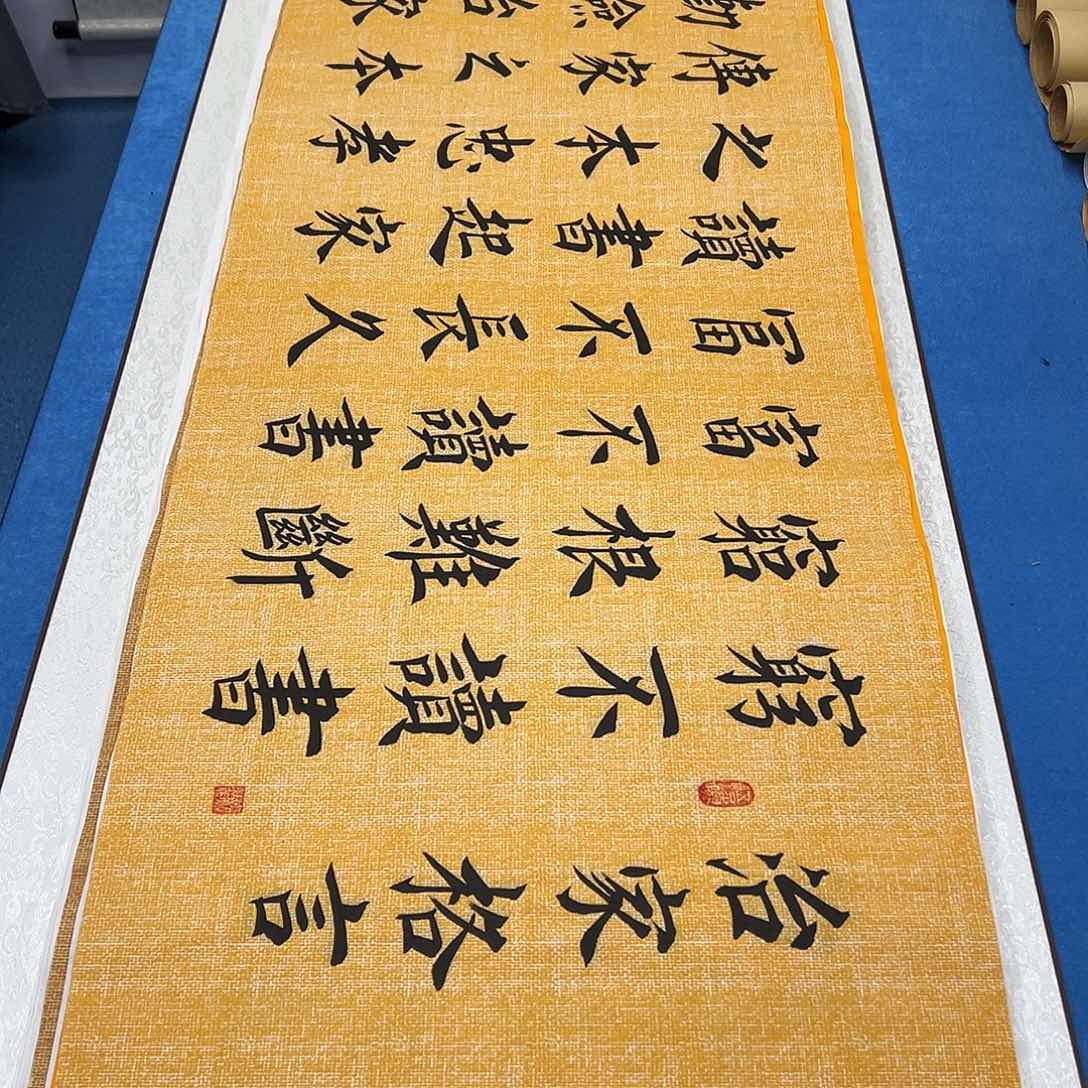 治家格言
窮不讀書
窮根難斷
富不讀書
冨不長久
讀書起家
之本忠孝
傳家之本
勤儉治家